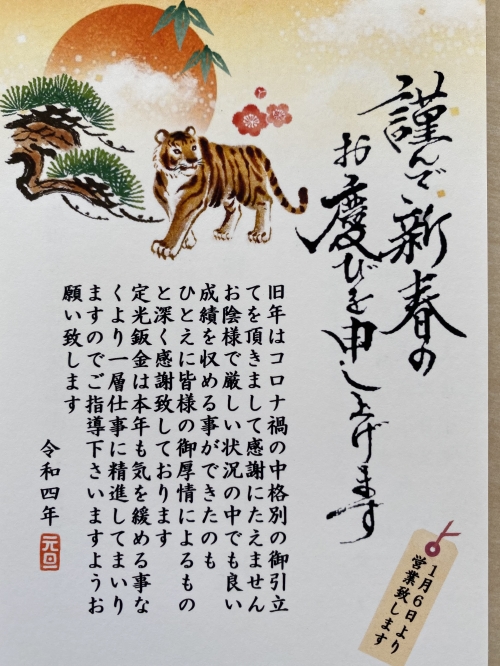 謹んで新春の
お慶びを申し上げます
旧年はコロナ禍の中格別の御引立
てを頂きまして感謝にたえません
お陰様で厳しい状況の中でも良い
成績を収める事ができたのも
ひとえに皆様の御厚情によるもの
と深く感謝致しております
定光鈑金は本年も気を緩める事な
くより一層仕事に精進してまいり
ますのでご指導下さいますようお
願い致します
令和四年
元旦
1月6日より
営業致します